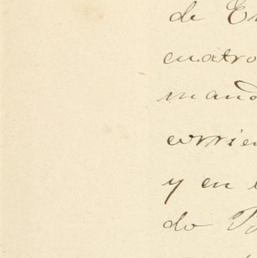 de En
cuatro
mand
corrien
y en
do